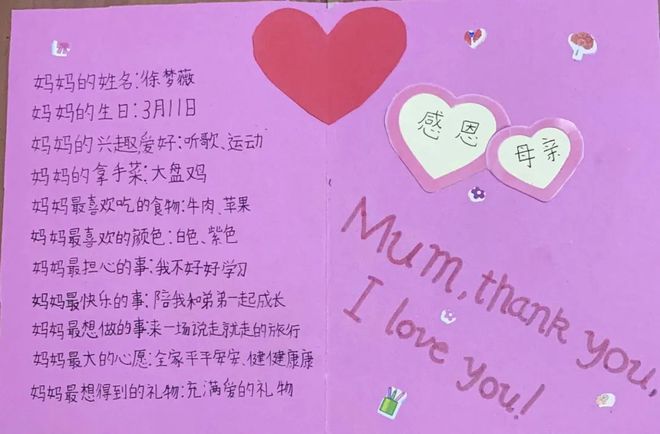 妈妈的姓名:徐梦薇
妈妈的生日:3月11日
妈妈的兴趣爱好:听歌、运动
妈妈的拿手菜:大盘鸡
妈妈最喜欢吃的食物:牛肉、苹果
妈妈最喜欢的颜色:白色、紫色
妈妈最担心的事:我不好好学习
妈妈最快乐的事:陪我和弟弟一起成长
妈妈最想做的事来一场说走就走的旅行
妈妈最大的心愿:全家平平安安、健健康康
妈妈最想得到的礼物:充满爱的礼物
感恩
母亲
Mum, thank you,
I love you!